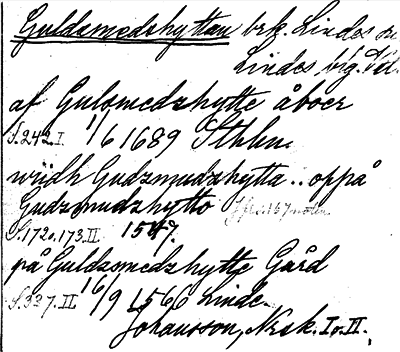 Guldsmedshyttan brk. Lindes sn
Lindes brg. Vstl.
af Gulsmedzhytte åboer
S. 242. I. 1/6 1689 Sthlm.
widh Gudzmudzhytta .. oppå
Gudzmudzhytto Jfr s. 167 noten.
S. 172 o. 173. II 1547.
på Guldzsmedzhytte Gård
S. 337. II 16/9 1566 Linde.
Johansson, Norsk. I o. II.